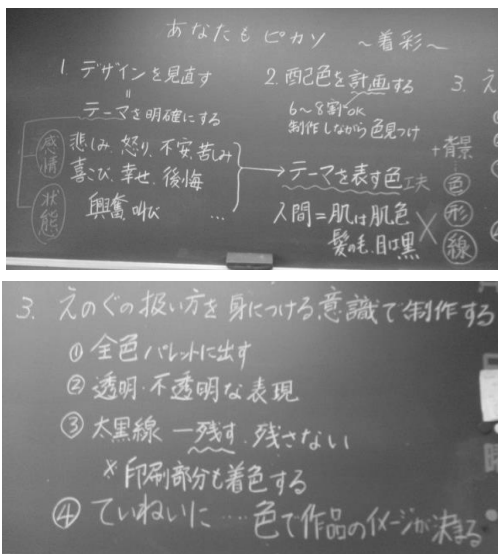 あなたもピカソ ～着彩～
1. デザインを見直す
=
テーマを明確にする
感情 悲しみ、怒り、不安、苦しみ
喜び、幸せ、後悔
状態 興奮 叫び …
2. 配色を計画する
6～8割OK
制作しながら色見つけ
テーマを表す色 工夫
人間=肌は肌色
髪の毛、目は黒
×
3. え
+背景
色
形
線
3. えのぐの扱い方を身につける意識で制作する
① 全色パレットに出す
② 透明・不透明な表現
③ 太黒線 ー残す、残さない
※印刷部分も着色する
④ ていねいに……色で作品のイメージが決まる